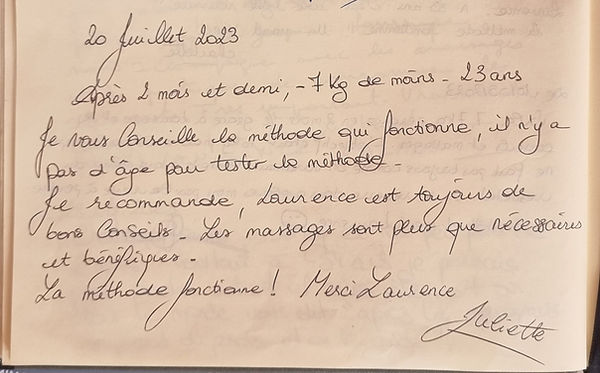 20 Juillet 2023
Après 2 mois et demi, - 7 kg de moins - 23 ans
Je vous Conseille la méthode qui fonctionne, il n'y a
pas d'âge pour tester la méthode -
Je recommande, Laurence est toujours de
bons Conseils - Les massages sont plus que nécessaires
et bénéfiques -
La méthode fonctionne ! Merci Laurence
Juliette